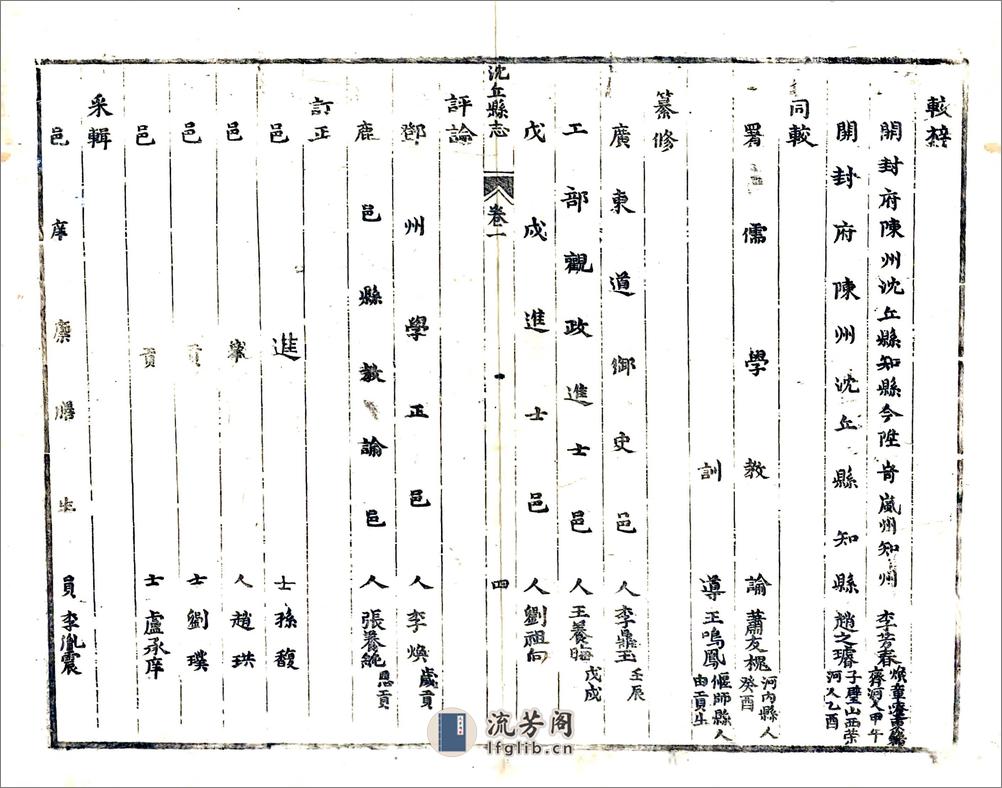 較梓
開封府陳州沈丘縣知縣今陞岢嵐州知州 李芳春 山東 齊河人甲午
開封府陳州沈丘縣知縣 趙之璿 子璧山西榮河人乙酉
同較
署儒學教諭 蕭友槐 河內縣人癸酉
訓導 王鳴鳳 偃師縣人由貢生
纂修
廣東道御史邑人 李鼎玉 壬辰
工部觀政進士邑人 王養晦 戊戌
戊戌進士邑人 劉祖向
沈丘縣志
卷一
四
評論
鄧州學正邑人 李煥 歲貢
鹿邑縣教諭邑人 張養純 恩貢
訂正
邑進士 孫馥
邑舉人 趙珙
邑貢士 劉璞
邑貢士 盧承庠
采輯
邑庠廩膳生員 李胤震
流芳阁
lfglib.cn